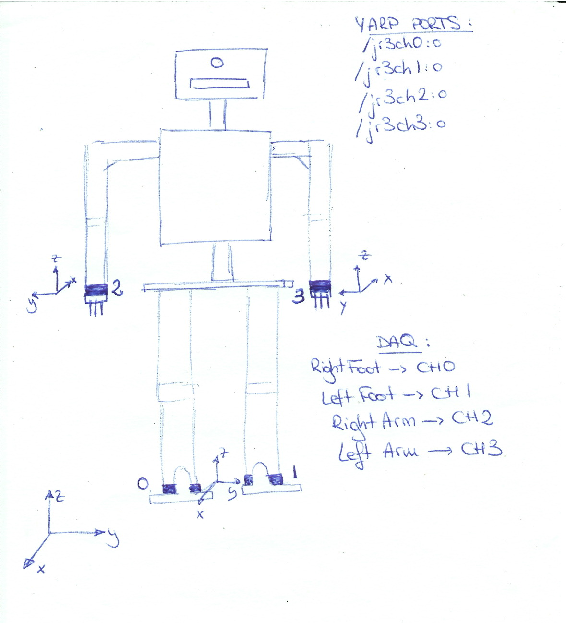 YARP PORTS:
/jr3ch0:o
/jr3ch1:o
/jr3ch2:o
/jr3ch3:o
z
x
y
2
3
z
x
y
DAQ:
Right Foot -> CH0
Left Foot -> CH1
Right Arm -> CH2
Left Arm -> CH3
0
z
y
x
1
z
y
x